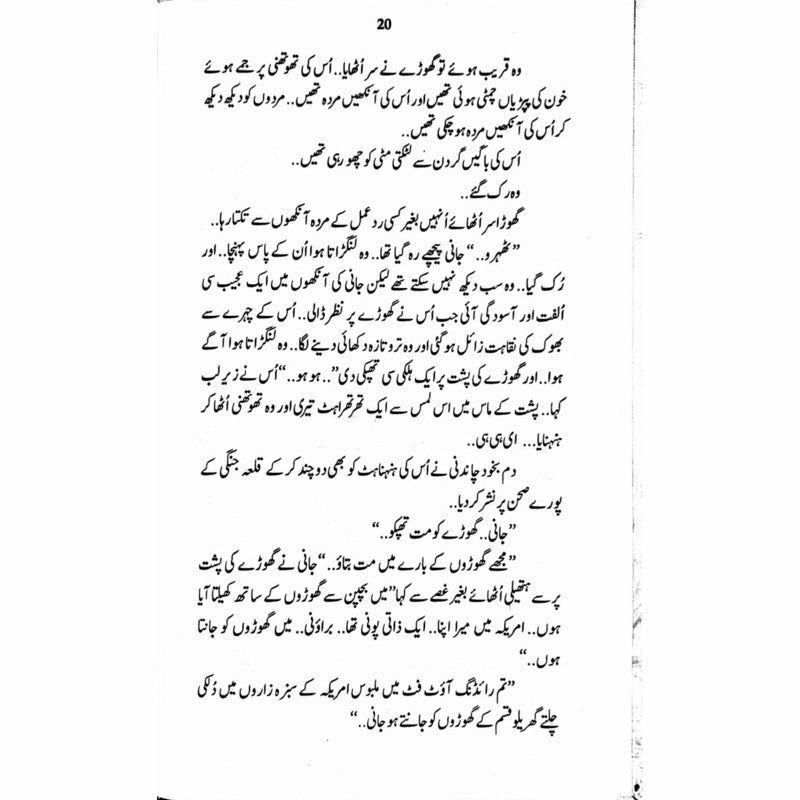 20
وہ قریب ہوئے تو گھوڑے نے سر اُٹھایا.. اُس کی تھوتھنی پر جمے ہوئے
خون کی پپڑیاں چمٹی ہوئی تھیں اور اُس کی آنکھیں مردہ تھیں.. مردوں کو دیکھ دیکھ
کر اُس کی آنکھیں مردہ ہو چکی تھیں..
اُس کی باگیں گردن سے لٹکتی مٹی کو چھو رہی تھیں..
وہ رک گئے..
گھوڑا سر اُٹھائے اُنہیں بغیر کسی ردعمل کے مردہ آنکھوں سے تکتا رہا..
”ٹھہرو..“ جانی پیچھے رہ گیا تھا.. وہ لنگڑاتا ہوا اُن کے پاس پہنچا.. اور
رُک گیا.. وہ سب دیکھ نہیں سکتے تھے لیکن جانی کی آنکھوں میں ایک عجیب سی
اُلفت اور آسودگی آئی جب اُس نے گھوڑے پر نظر ڈالی.. اُس کے چہرے سے
بھوک کی نقاہت زائل ہوگئی اور وہ تروتازہ دکھائی دینے لگا.. وہ لنگڑاتا ہوا آگے
ہوا.. اور گھوڑے کی پشت پر ایک ہلکی سی تھپکی دی”.. ہو ہو..“ اُس نے زیر لب
کہا.. پشت کے ماس میں اس لمس سے ایک تھرتھراہٹ تیری اور وہ تھوتھنی اُٹھا کر
ہنہنایا... ای ہی ہی..
دم بخود چاندنی نے اُس کی ہنہناہٹ کو بھی دوچند کر کے قلعہ جنگی کے
پورے صحن پر نشر کر دیا..
”جانی.. گھوڑے کو مت تھپکو..“
”مجھے گھوڑوں کے بارے میں مت بتاؤ..“ جانی نے گھوڑے کی پشت
پر سے ہتھیلی اُٹھائے بغیر غصے سے کہا”میں بچپن سے گھوڑوں کے ساتھ کھیلتا آیا
ہوں.. امریکہ میں میرا اپنا.. ایک ذاتی پونی تھا.. براؤنی.. میں گھوڑوں کو جانتا
ہوں..“
”تم رائڈنگ آؤٹ فٹ میں ملبوس امریکہ کے سبزہ زاروں میں دُلکی
چلتے گھریلو قسم کے گھوڑوں کو جانتے ہو جانی..“